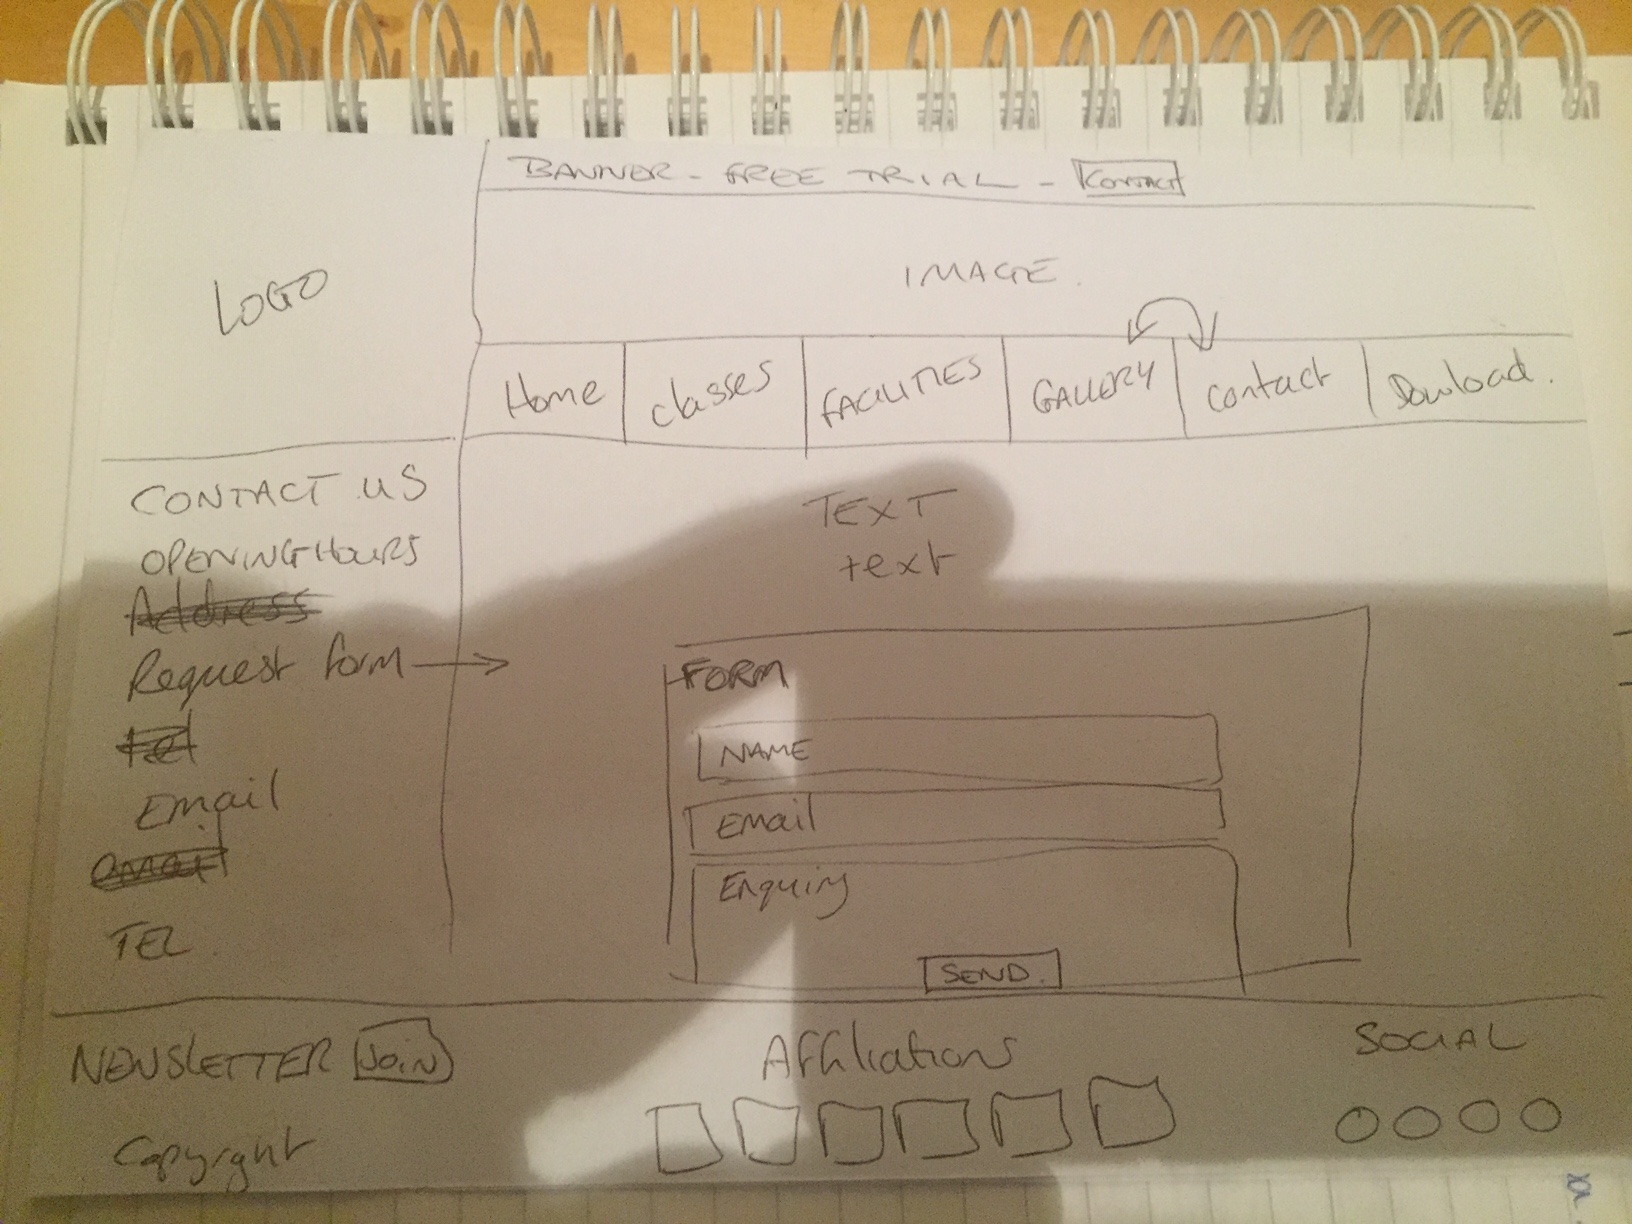 BANNER - FREE TRIAL - CONTACT
LOGO
IMAGE.
Home
classes
FACILITIES
GALLERY
contact
Download.
CONTACT US
OPENING HOURS
Address
Request form
Tel
Email
email
TEL.
TEXT
text
FORM
NAME
Email
Enquiry
SEND.
NEWSLETTER JOIN
Affiliations
SOCIAL
Copyright